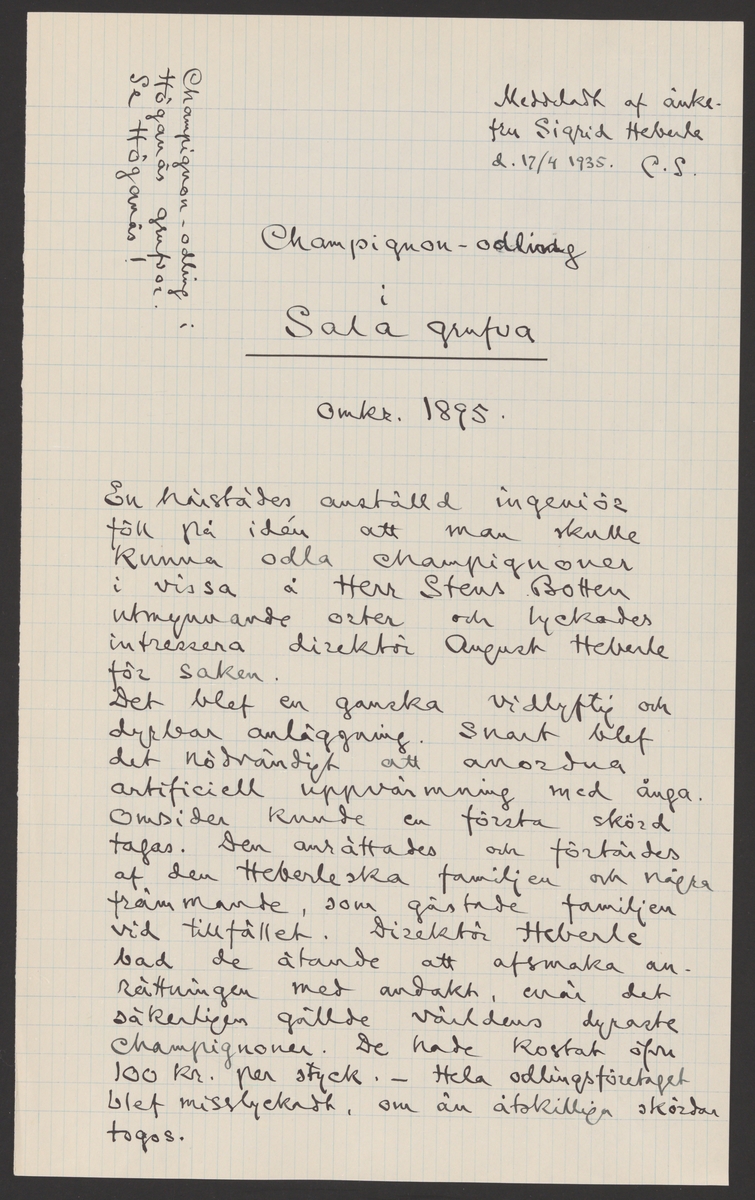 Champignon-odling i
Höganäs grufvor.
Se Höganäs!
Meddeladt af änke-
fru Sigrid Heberle
d. 17/4 1935. C.S.
Champignon-odling
i
Sala grufva
omkr. 1895.
En härstädes anställd ingeniör
föll på idén att man skulle
kunna odla champignoner
i vissa å Herr Stens Botten
utmynnande orter och lyckades
intressera direktör August Heberle
för saken.
Det blef en ganska vidlyftig och
dyrbar anläggning. Snart blef
det nödvändigt att anordna
artificiell uppvärmning med ånga.
Omsider kunde en första skörd
tagas. Den anrättades och förtärdes
af den Heberleska familjen och några
främmande, som gästade familjen
vid tillfället. Direktör Heberle
bad de ätande att afsmaka an-
rättningen med andakt, enär det
säkerligen gällde världens dyraste
champignoner. De hade kostat öfver
100 kr. per styck. – Hela odlingsföretaget
blef misslyckadt, om än åtskilliga skördar
togos.